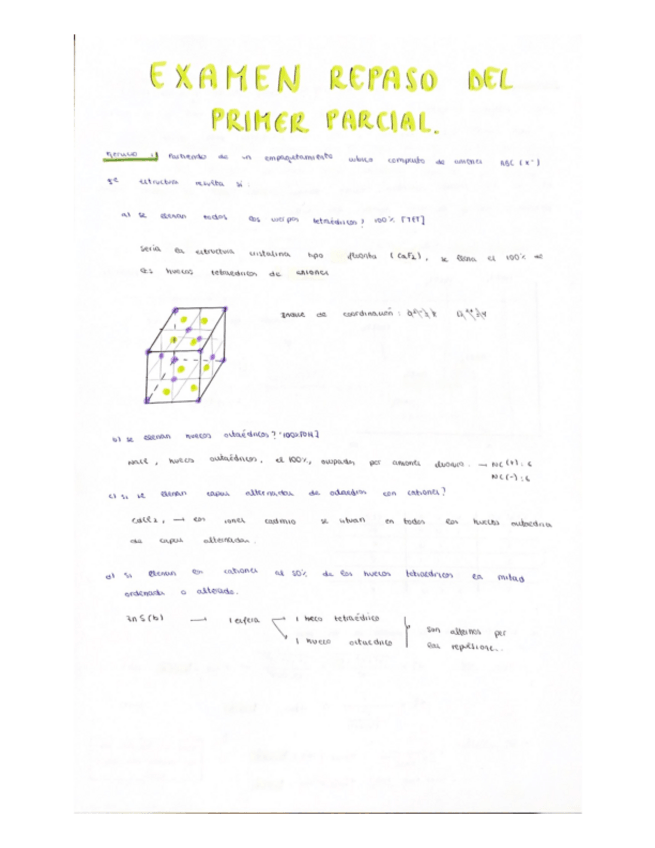 EXAMEN REPASO DEL
PRIMER PARCIAL.
de un empaquetamiento cubico compacto de aniones ABC (X⁻)
estructura resulta si:
a) se llenan todos los tetraédricos? 100% [TET]
seria la estructura cristalina tipo fluorita (CaF₂), se llena el 100% de
los huecos tetraédricos de cationes
de coordinación:
b) se llenan huecos octaédricos? 100% [OH]
NaCl, huecos octaédricos, el 100%, ocupados por aniones cloruro. → NC(+): 6
NC(-): 6
c) si se llenan capas alternadas de con cationes?
→ los iones cadmio se situan en todos los huecos
de capas alternadas.
d) Si llenan los cationes al 50% de los huecos tetraedricos en mitad
ordenada o alterado.
ZnS (b) → 1 esfera 1 hueco tetraédrico
1 hueco octaedrico
son alternos por
las repulsione...